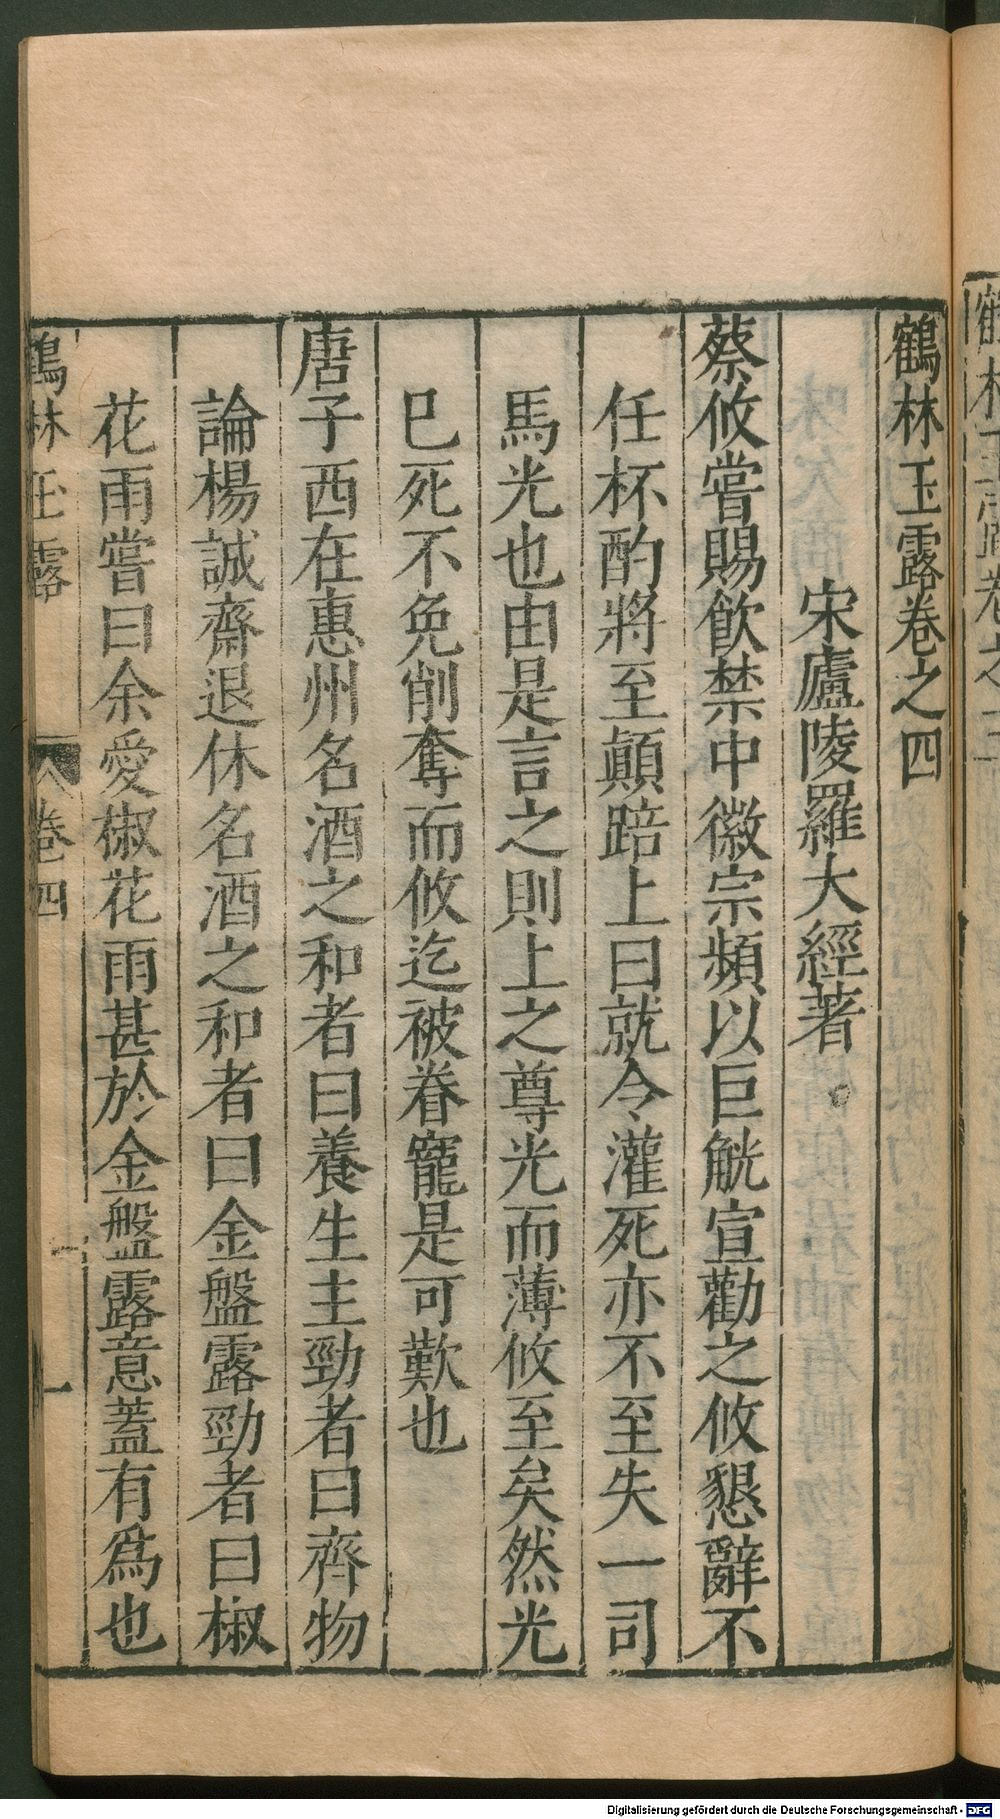 鶴林玉露卷之四
宋廬陵羅大經著
蔡攸嘗賜飲禁中徽宗頻以巨觥宣勸之攸懇辭不
任杯酌將至顛踣上曰就令灌死亦不至失一司
馬光也由是言之則上之尊光而薄攸至矣然光
巳死不免削奪而攸迄被眷寵是可歎也
唐子西在惠州名酒之和者曰養生主勁者曰齊物
論楊誠齋退休名酒之和者曰金盤露勁者曰椒
花雨嘗曰余愛椒花雨甚於金盤露意蓋有爲也
鶴林玉露
卷四
一
Digitalisierung gefördert durch die Deutsche Forschungsgemeinschaft - DFG